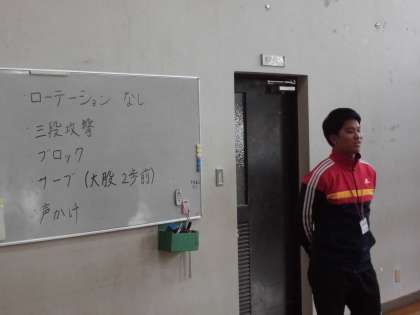 ローテーション なし
・三段攻撃
ブロック
サーブ(大股2歩前)
・声かけ